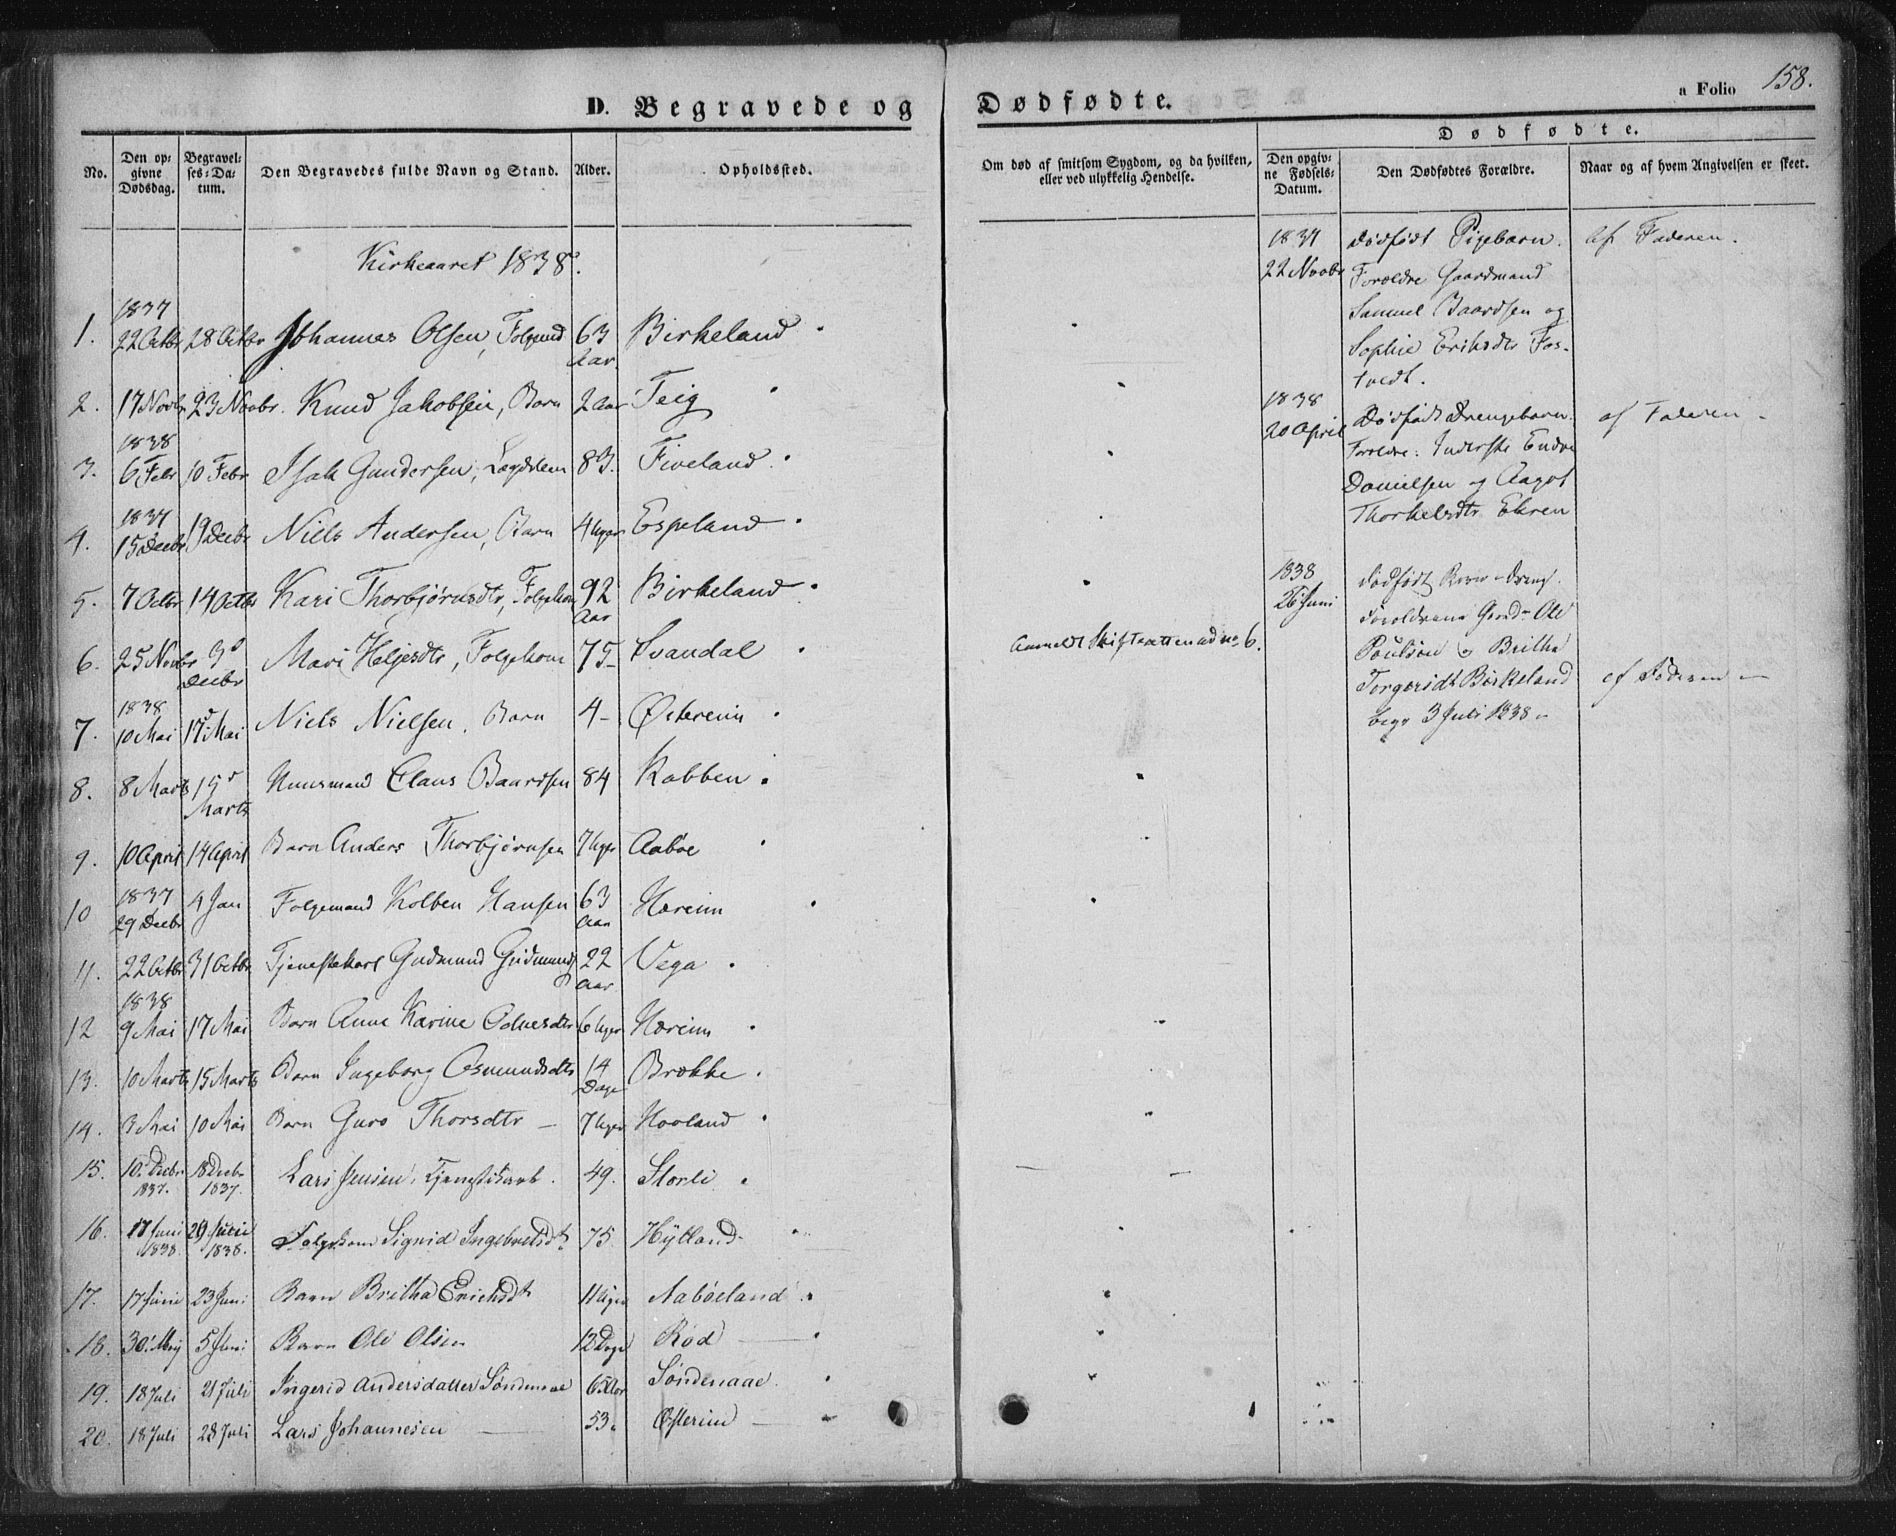 D. Begravede og
Dødfødte.
a Folio 158.
No.
Den opgivne Dødsdag.
Begravelses-Datum.
Den Begravedes fulde Navn og Stand.
Alder.
Opholdssted.
Om død af smitsom Sygdom, og da hvilken, eller ved ulykkelig Hendelse.
Dødfødte.
Den opgivne Fødsels-Datum.
Den Dødfødtes Forældre.
Naar og af hvem Angivelsen er skeet.
Kirkeaaret 1838.
1. 1837 22 Octbr 28 Octbr Johannes Olsen, Folgemd 63 Aar Birkeland
2. 17 Novbr 23 Novbr. Knud Jakobsen, Barn 2 Aar Teig
3. 1838 6 Febr 10 Febr Isak Gundersen, Lægdslem 83. Fiveland
4. 1837 15 Decbr 19 Decbr Niels Andersen, Barn 4 Uger Espeland
5. 7 Octbr 14 Octbr Kari Thorbjørnsdtr, Folgekone 92 Aar Birkeland
6. 25 Novbr 3d Decbr Mari Helgesdtr, Folgekone 75 Svandal Anmeldt Skifteretten ad no 6.
7. 1838 10 Mai 17d Mai Niels Nielsen, Barn 4 - Østereim
8. 8 Marts 15d Marts Huusmand Claus Baardsen 84 Kobben
9. 10 April 14 April Barn Anders Thorbjørnsen 7 Uger Aabøe
10 1837 29 Decbr 4 Jan Folgemand Kolben Hansen 63 Aar Hæreim
11. 22 Octbr 31 Octbr Tjenestekarl Gudmund Gudmunds 22 Aar Vega
12 1838 9 Mai 17 Mai Barn Anne Karine Odnesdtr 6 Uger Hæreim
13. 10 Marts 15 Marts Barn Ingeborg Osmundsdtr 14 Dage Brække
14. 3 Mai 10 Mai Barn Guro Thorsdtr - 7 Uger Hovland
15. 10 Decbr 1837. 18 Decbr 1837. Lars Jensen, Tjenestkarl. 49. Storli
16. 17 Juni 1838. 29 Juni 1838. Folgekone Sigrid Ingebretsdt. 75 Hÿlland
17. 17 Juni 23 Juni Barn Britha Erichsdt 11 Uger Nabøeland
18. 30 Maj 5 Juni Barn Ole Olsen 12 Dage Rød
19. 18 Juli 21 Juli Ingerid Andersdatter Søndenaae 65 Aar Søndenaae.
20. 18 Juli 28 Juli Lars Johannesen 53. Østerim
1837 22 Novbr
Dødfødt Pigebarn.
Forældre Gaardmand
Samuel Baardsen og
Sophie Eriksdtr Fos-
tvedt.
Af Faderen.
1838 20 April
Dødfødt Drengebarn.
Foreldre: Inderste Endre
Danielsen og Aagot
Thorkelsdtr Ekren
af Faderen -
1838 26 Juni
Dødfødt Barn - Dreng.
Forældrene Gaard- Ole
Poulsen og Britha
Torgersdt Birkeland
begr 3 Juli 1838 -
af Faderen -